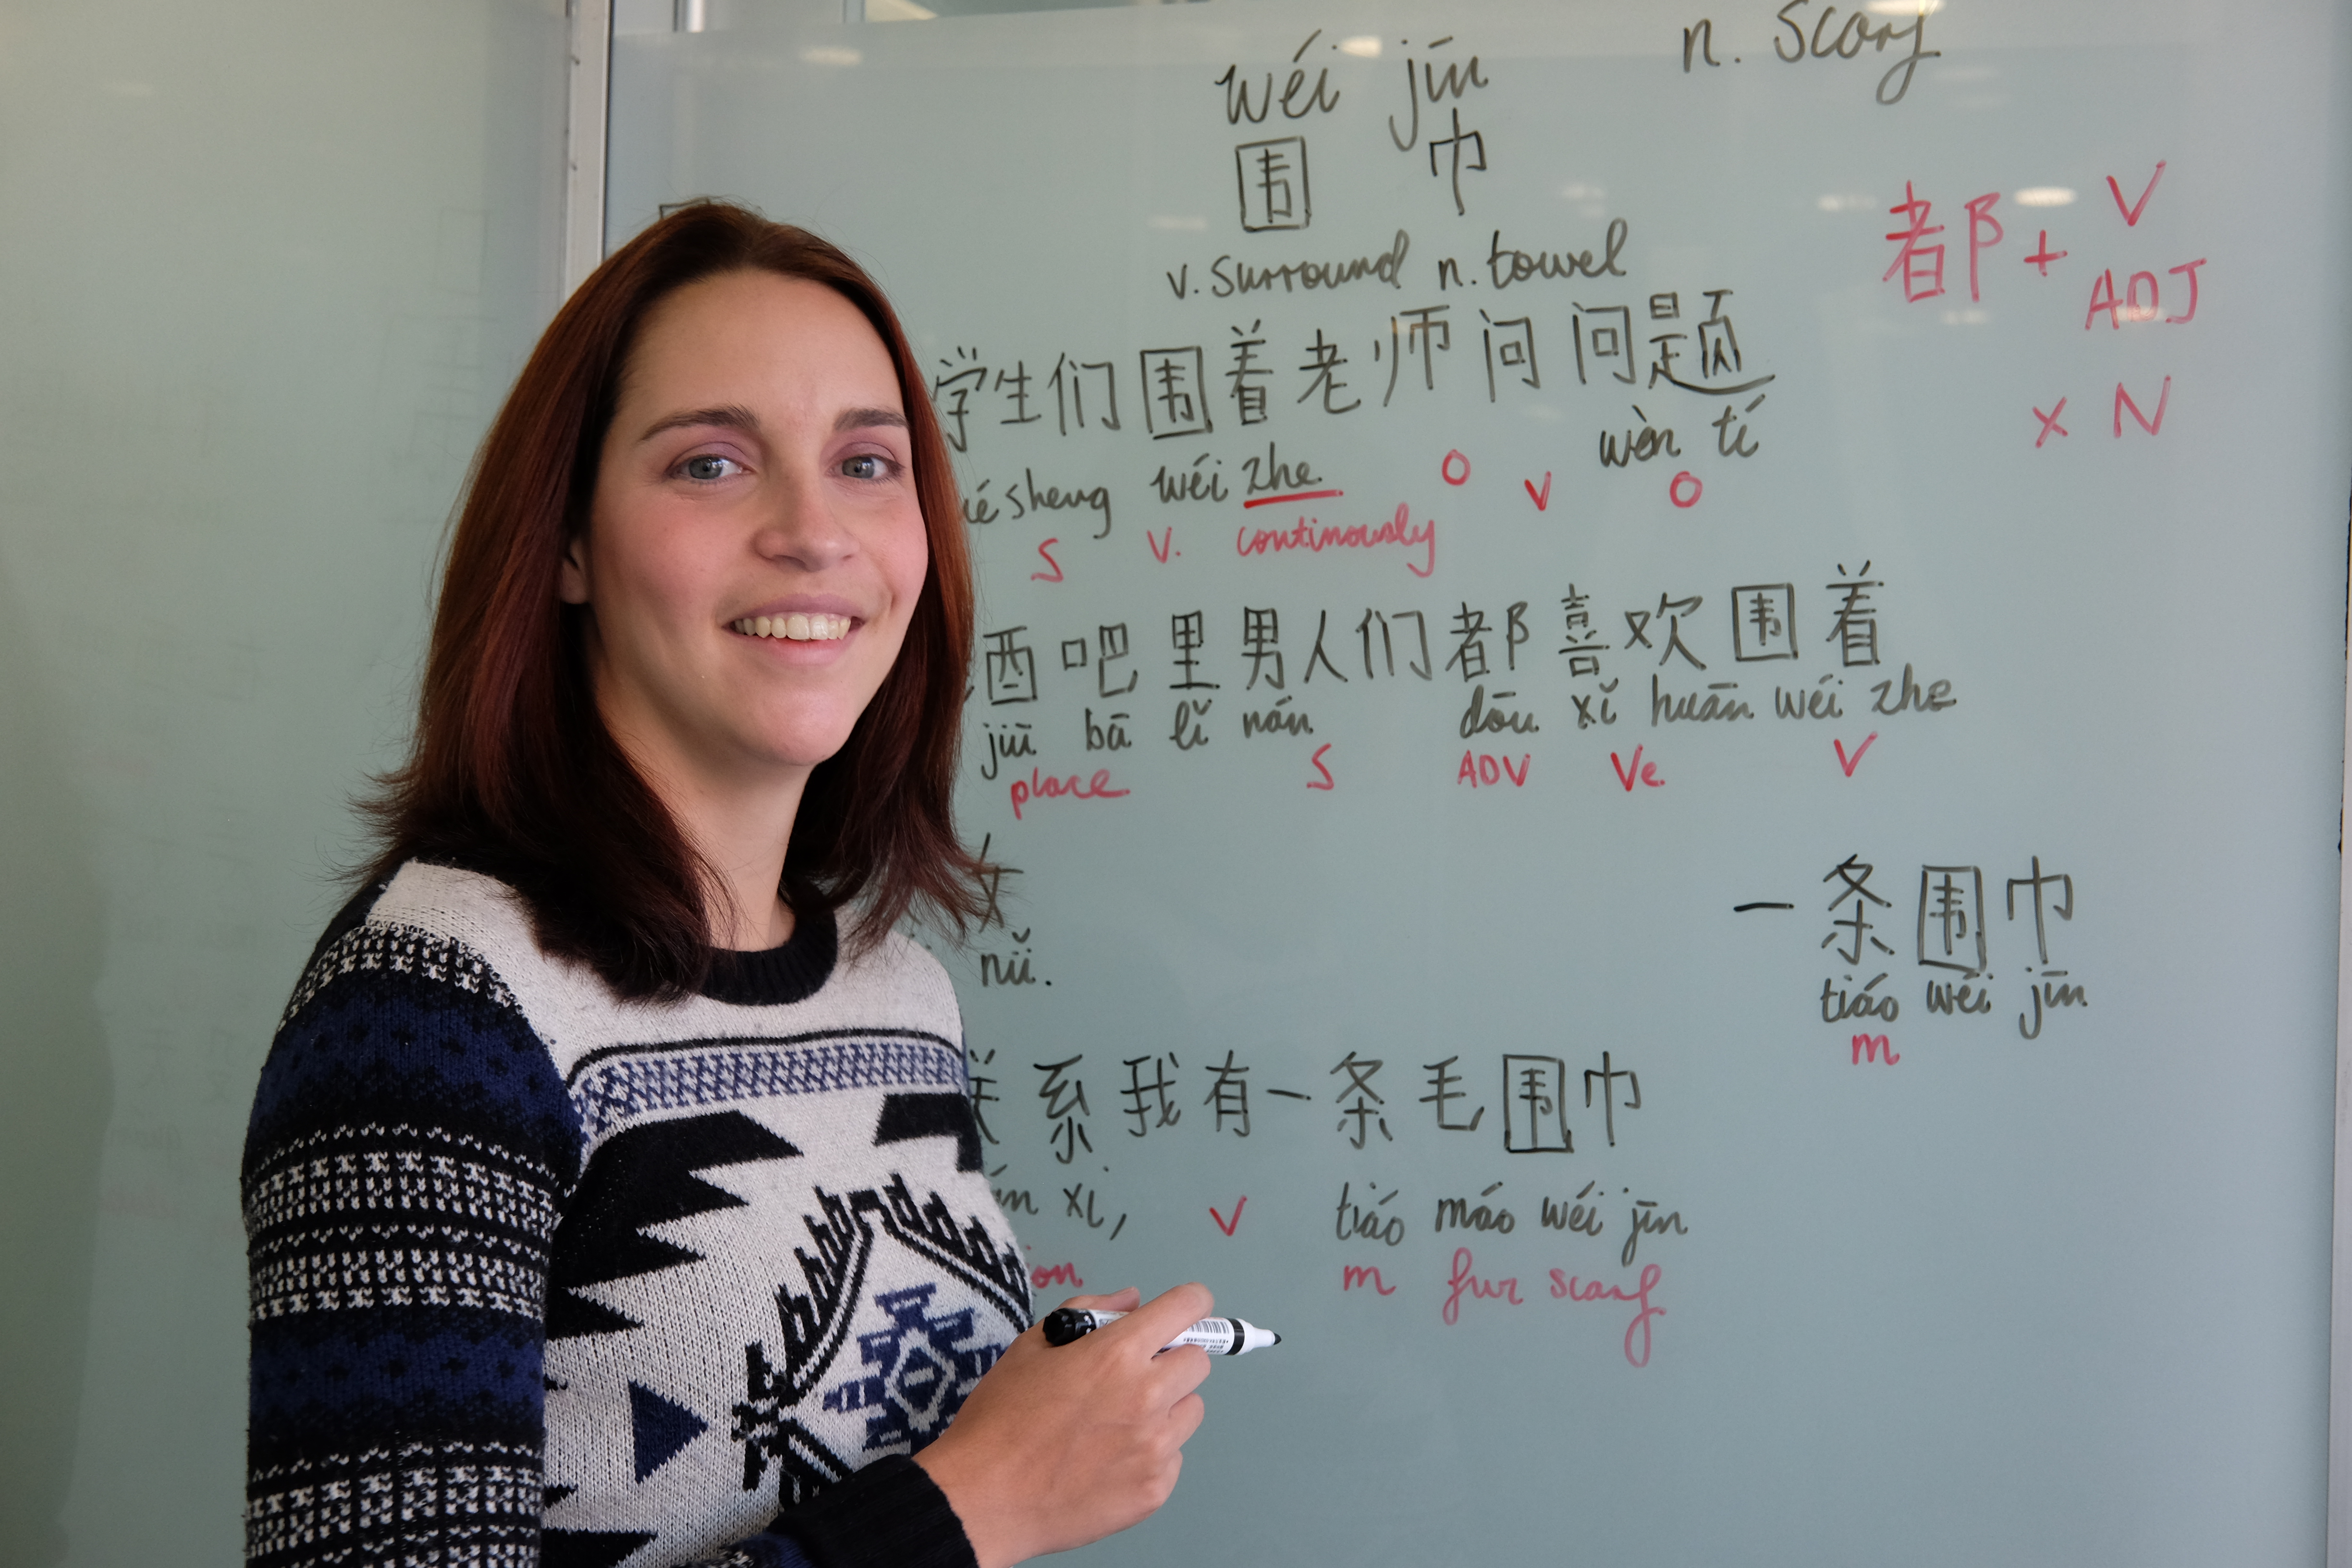 wéi jīn n. Scarf
围 巾
v. surround n. towel
都 + V
ADJ
× N
学生们围着老师问问题
sheng wéi zhe wèn tí
S V. continously O V O
酒吧里男人们都喜欢围着
jiǔ bā lǐ nán dōu xǐ huān wéi zhe
place S ADV Ve. V
女
nǚ.
一条围巾
tiáo wéi jīn
m
系我有一条毛围巾
xi, tiáo máo wéi jīn
V m fur scarf